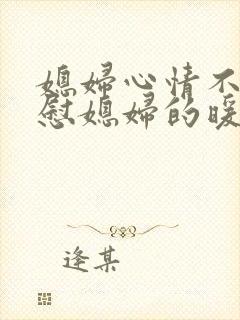 媳妇心情不
慰媳妇的暖
逢某